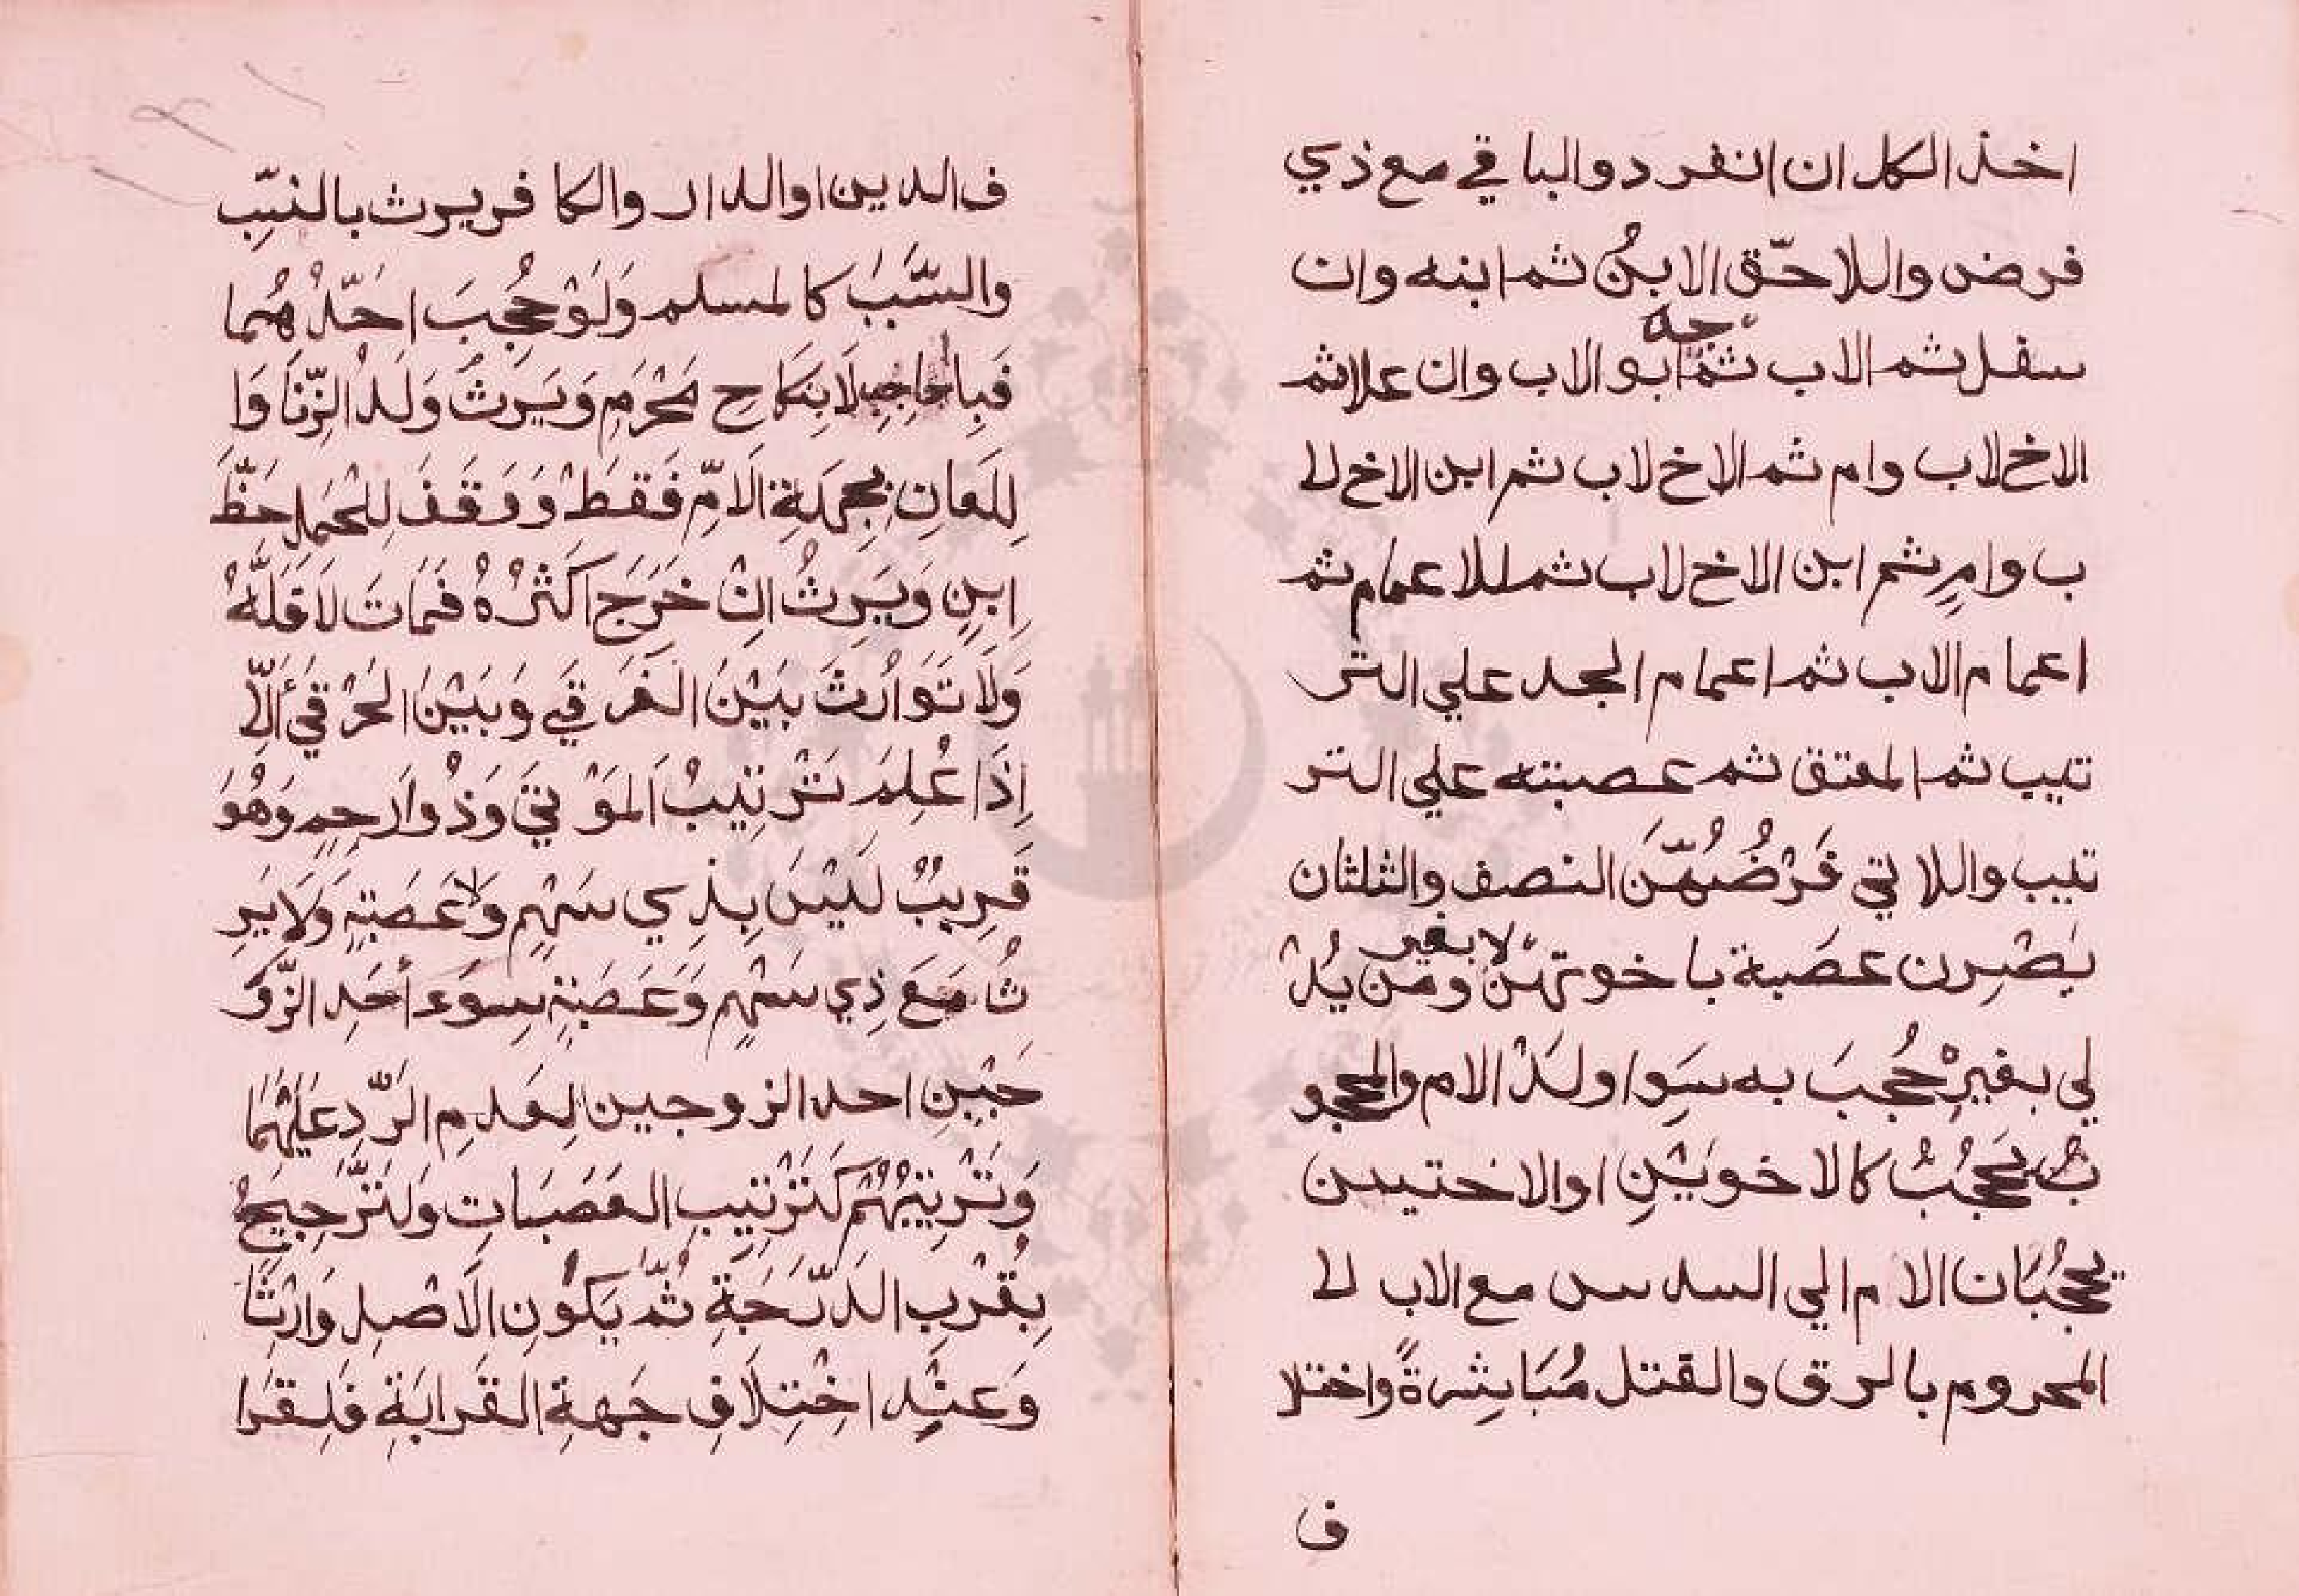 اخذ الكل ان انفرد والباقي مع ذي
فرض واللاحق الابن ثم ابنه وان
سفل ثم الاب ثم ابو الاب وان علا ثم
الاخ لاب وام ثم الاخ لاب ثم ابن الاخ لا
ب وامٍ ثم ابن الاخ لاب ثم للاعمام ثم
اعمام الاب ثم اعمام الجد علي التر
تيب ثم المعتق ثم عصبته علي التر
تيب واللاتي فَرْضُهُنَّ النصف والثلثان
يَصْرِن عصَبة باخوتهن لا بغير ومن يُدْ
لي بغيرِهْ حُجِبَ به سِوا ولَدْ الام والمحجو
بْ يَحجُبْ كالاخوَيْنِ او الاختين
يحجُبَان الام الي السدس مع الاب لا
المحروم بالرق والقتل مُبَاشِرةً واختلا
ف
ف الدين او الدار والكافر يرث بالنسب
والسَّبَبْ كالمسلم وَلَوْ حُجِبَ احَدُهُما
فَبِالحاجِبِ لَا بنِكَاحِ مَحْرَمٍ وَيَرِثُ وَلَدْ الزِّنَا وَا
لِلعَانِ بِجِهَةِ الاُمِّ فَقَطْ وَوَقَفَ لِلْحَمْلِ حَظّ
ابنٍ وَيَرِثُ اِنْ خَرَجَ اكَثْرُهُ فَمَاتَ لَا اَقَلّهُ
وَلَا تَوَارُثَ بَيْنَ الغَرقَي وَبَيْنَ الحَرْقيَ اِلّا
اِذَا عُلِمَ تَرْتِيبُ المَوْتيَ وَذُوا رحِمٍ وَهُوَ
قَرِيبٌ لَيْسَ بِذِي سَهْمٍ وَلَا عَصَبَةٍ وَلَا يَرِ
ثُ مَعَ ذِي سَهْمٍ وَعَصَبَةٍ سِوَء أحَدِ الزَّو
جَيْنِ احد الزوجين لِعَدمِ الرَّدِ عَلَيْهُمَا
وَتَرْتِيبُهُمْ كَتَرْتِيبِ العَصَبَاتِ وَلتَّرْجِيحُ
بِقُرْبِ الدَّرَجَةِ ثُمَّ يَكُونِ الَاصْلِ وَارِثًا
وَعنْدِ اخْتِلَافِ جَهةِ القَرابَةِ فَلِقَرا